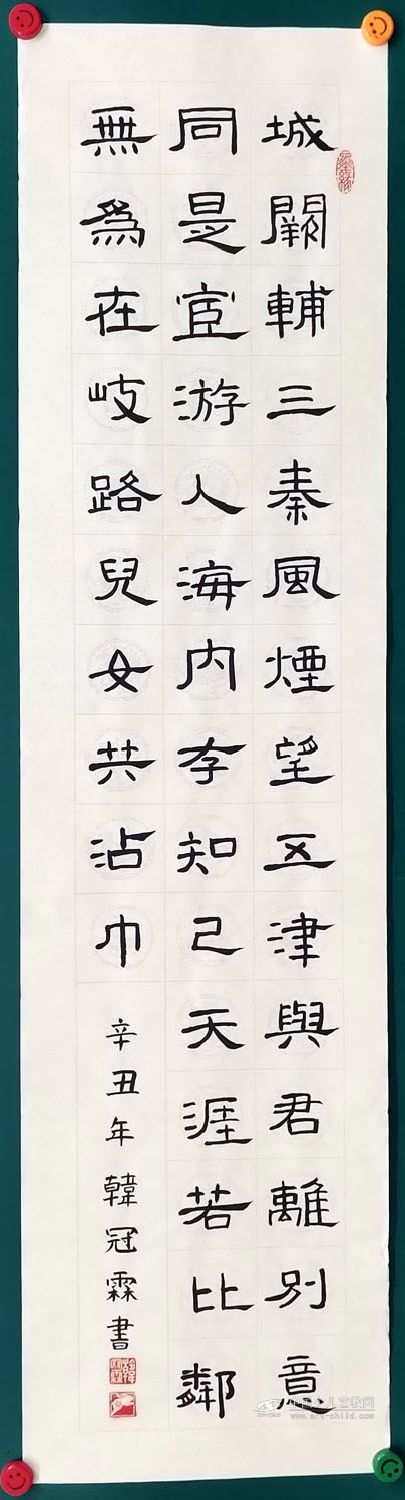 城闕輔三秦風煙望五津與君離別意
同是宦游人海内存知己天涯若比鄰
無為在岐路兒女共沾巾
辛丑年韓冠霖書
www.art-child.com